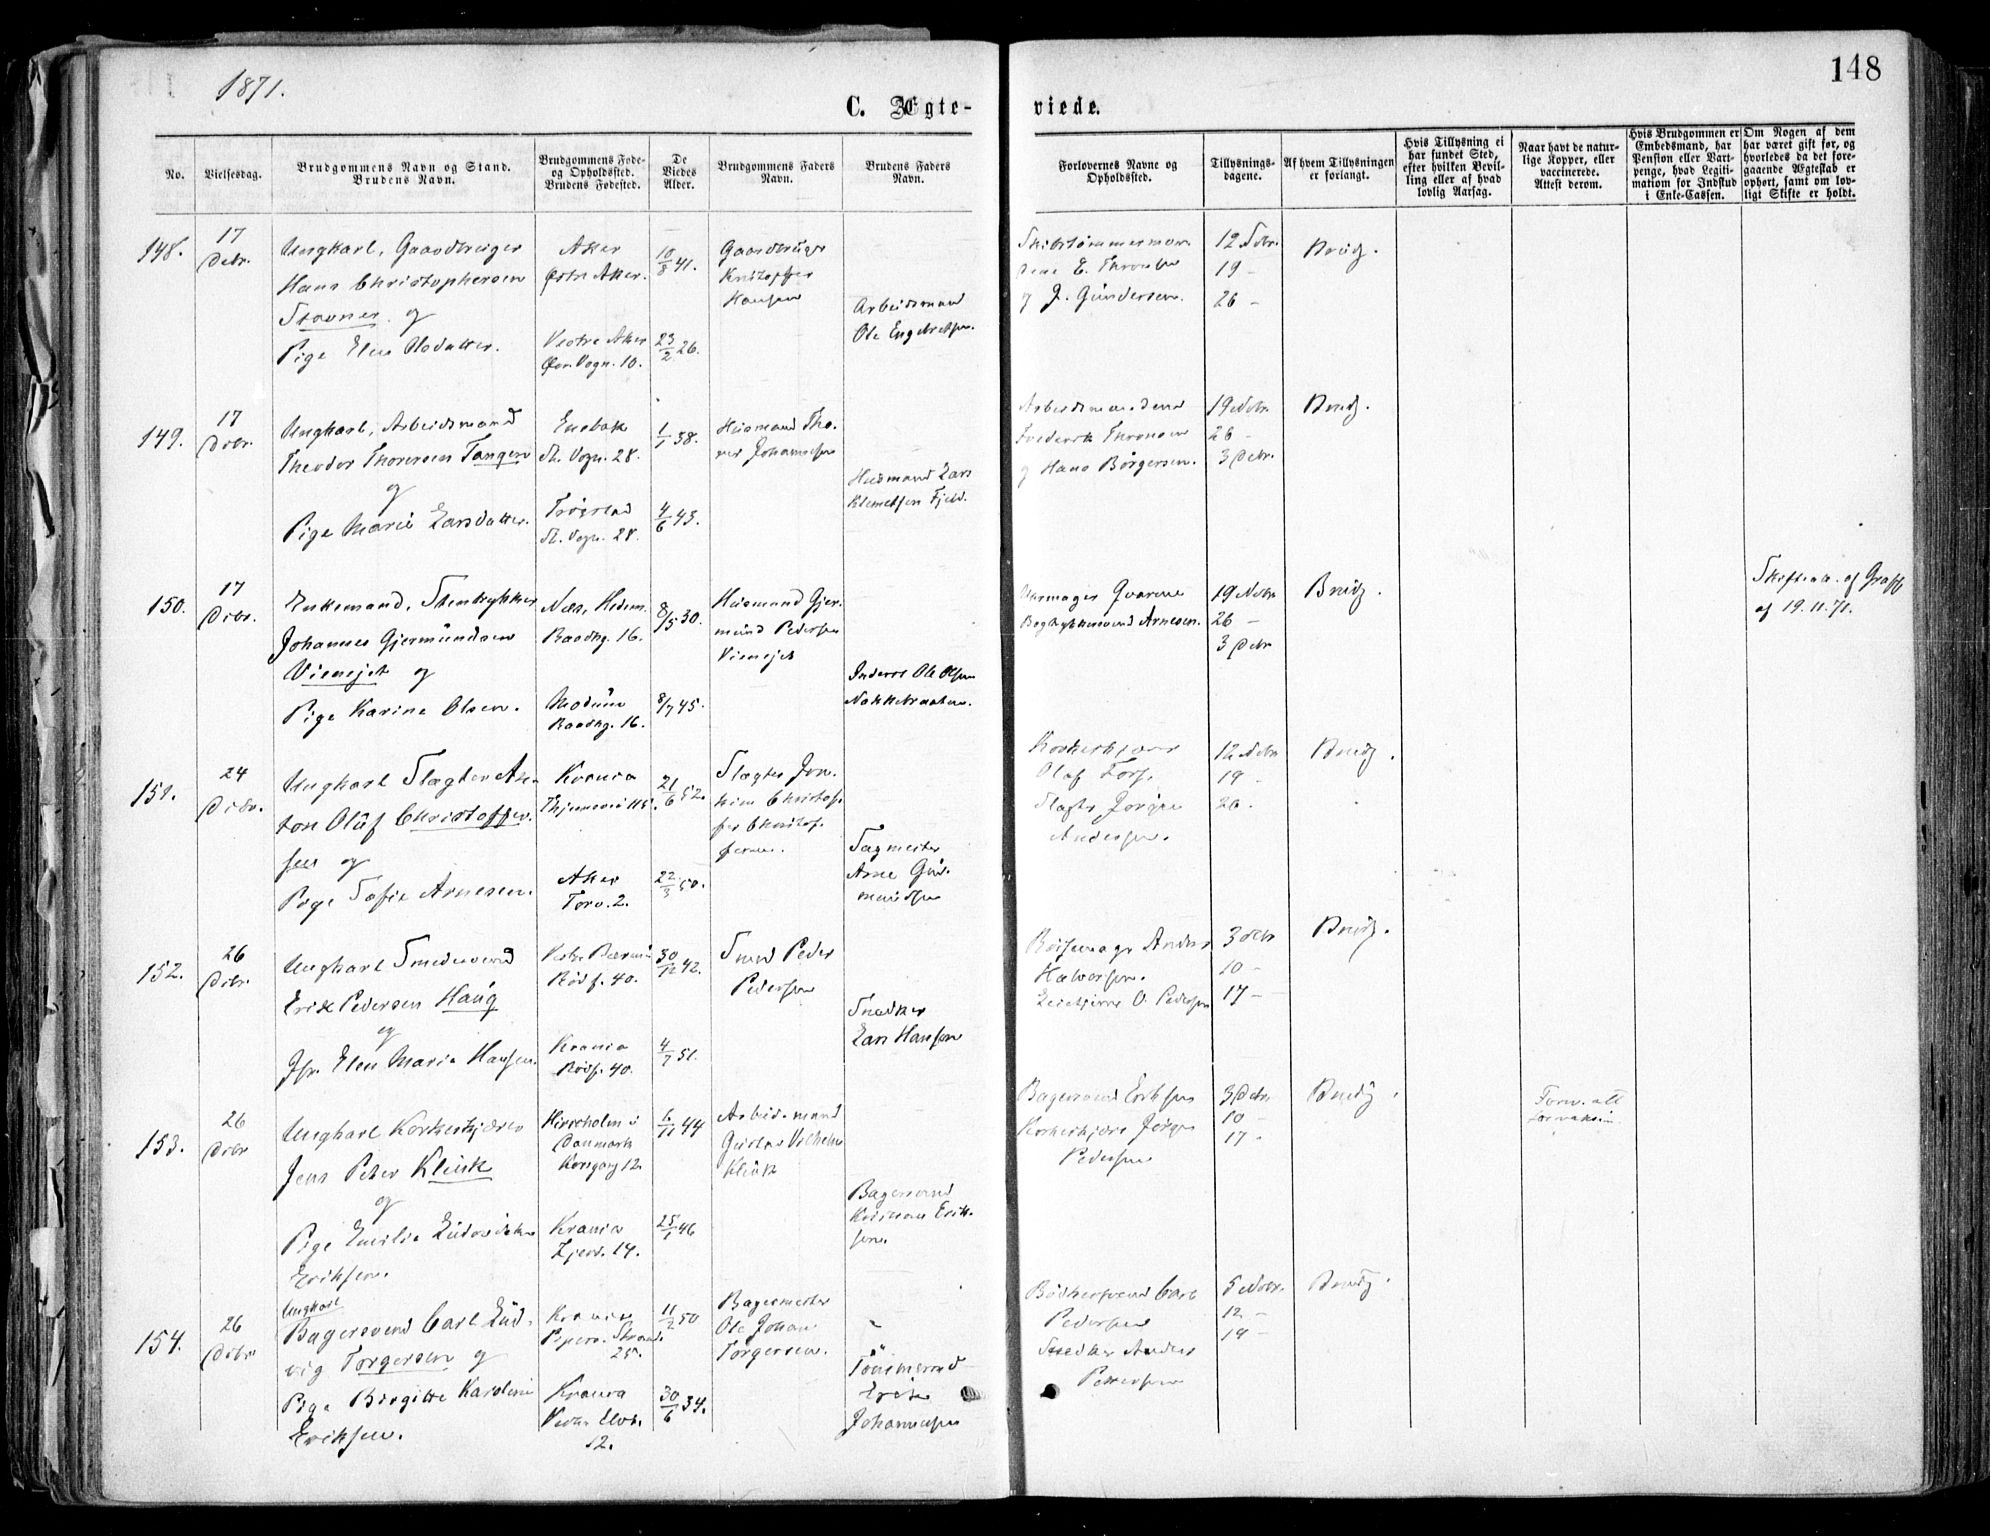 1871.
148
C. Ægte-
viede.
No.
Vielsesdag.
Brudgommens Navn og Stand.
Brudens Navn.
Brudgommens Føde-
og Opholdssted.
Brudens Fødested.
De
Viedes
Alder.
Brudgommens Faders
Navn.
Brudens Faders
Navn.
Forlovernes Navne og
Opholdssted.
Tillysnings-
dagene.
Af hvem Tillysningen
er forlangt.
Hvis Tillysning ei
har fundet Sted,
efter hvilken Bevil-
ling eller af hvad
lovlig Aarsag.
Naar havt de natur-
lige Kopper, eller
vaccinerede.
Attest derom.
Hvis Brudgommen er
Embedsmand, har
Pension eller Vart-
penge, hvad Legiti-
mation for Indskud
i Enke-Cassen.
Om Nogen af dem
har været gift før, og
hvorledes da det fore-
gaaende Ægteskab er
ophørt, samt om lov-
ligt Skifte er holdt.
148.
17
Debr.
Ungkarl, Gaardbruger
Hans Christophersen
Stovner og
Pige Elen Olsdatter.
Aker
Østre Aker.
Vestre Aker
Vogn. 10.
10/8 41.
23/2 26.
Gaardbruger
Kristoffer
Hansen
Arbeidsmand
Ole Engebretsen.
Skibstømmermæn.
E. Thronsen
og J. Gundersen.
12 Nobr.
19 -
26 -
Brudg.
149.
17
Debr.
Ungkarl, Arbeidsmand
Theodor Thoresen Tangen
og
Pige Marie Larsdatter.
Enebak
St. Vogn. 28.
Trøgstad
St. Vogn. 28.
1/1 38.
4/6 43.
Husmand Tho-
res Johannesen
Husmand Lars
Klemetsen Fjeld.
Arbeidsmændene
Frederik Thronsen
og Hans Børgersen.
19 Nobr.
26 -
3 Debr.
Brudg.
150.
17
Debr.
Enkemand, Stenhykker
Johannes Gjermundsen
og
Pige Karine Olsen.
Næs, Hedem.
Raadhg. 16.
Modum
Raadhg. 16.
8/5 30.
8/7 45.
Husmand Gjer-
mund Pedersen
Inderst Ole Olsen
Uhrmager Qvarme
Arnesen.
19 Nobr.
26 -
3 Debr
Brudg.
Skifteatt. af
af 19.11.71.
151.
24
Debr.
Ungkarl Slagter An-
ton Oluf Christoffer-
sen og
Pige Sofie Arnesen.
Krania
Aker
Torv. 2.
21/6 52.
22/3 50.
Slagter
Christof-
fer Christof-
fersen.
Sagmester
Arne Gud-
mundsen
Korkeskjærer
Olaf
Slagter Jørgen
Andersen.
12 Nobr
19 -
26.
Brudg.
152.
26
Debr.
Ungkarl Smedesvend
Erik Pedersen Haug
og
Jfr. Elen Marie Hansen.
Vestre Bærum
Rødf. 40.
Krania
Rødf. 40.
30/12 42.
4/7 51.
Smed Peder
Pedersen
Snedker
Lars Hansen
Bøssemager Anders
Halvorsen.
O. Pedersen
3 Debr
10 -
17 -
Brudg.
153.
26
Debr
Ungkarl Korkeskjærer
Jens Peter Klink
og
Pige Emilie
Eriksen.
i
Danmark
Korsgang 12.
Krania
14.
6/11 44
25/1 46
Arbeidsmand
Gustav Vilhelm
Klink
Bagersvend
Erik-
sen.
Bagersvend Eriksen
Korkeskjærer Jørgen
Pedersen
3 Debr.
10 -
17 -
Brudg.
154.
26
Debr
Ungkarl
Bagersvend Carl Lud-
vig Torgersen og
Pige Birgitte Karoline
Eriksen.
Krania
Pipervi. Strand.
25.
Krania
12.
11/2 50
30/6 34.
Bagermester
Ole Johan
Torgersen.
Erik
Johannesen
Bødkersvend Carl
Pedersen
Snedker Anders
Pettersen
5 Nobr.
12 -
19 -
Brudg.